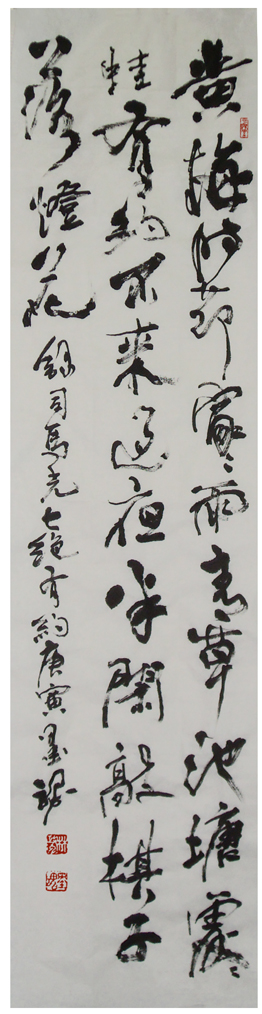 黄梅时節家〻雨青草池塘處〻
蛙有約不來過夜半閑敲棋子
落燈花 錄司馬光七絕有約庚寅墨